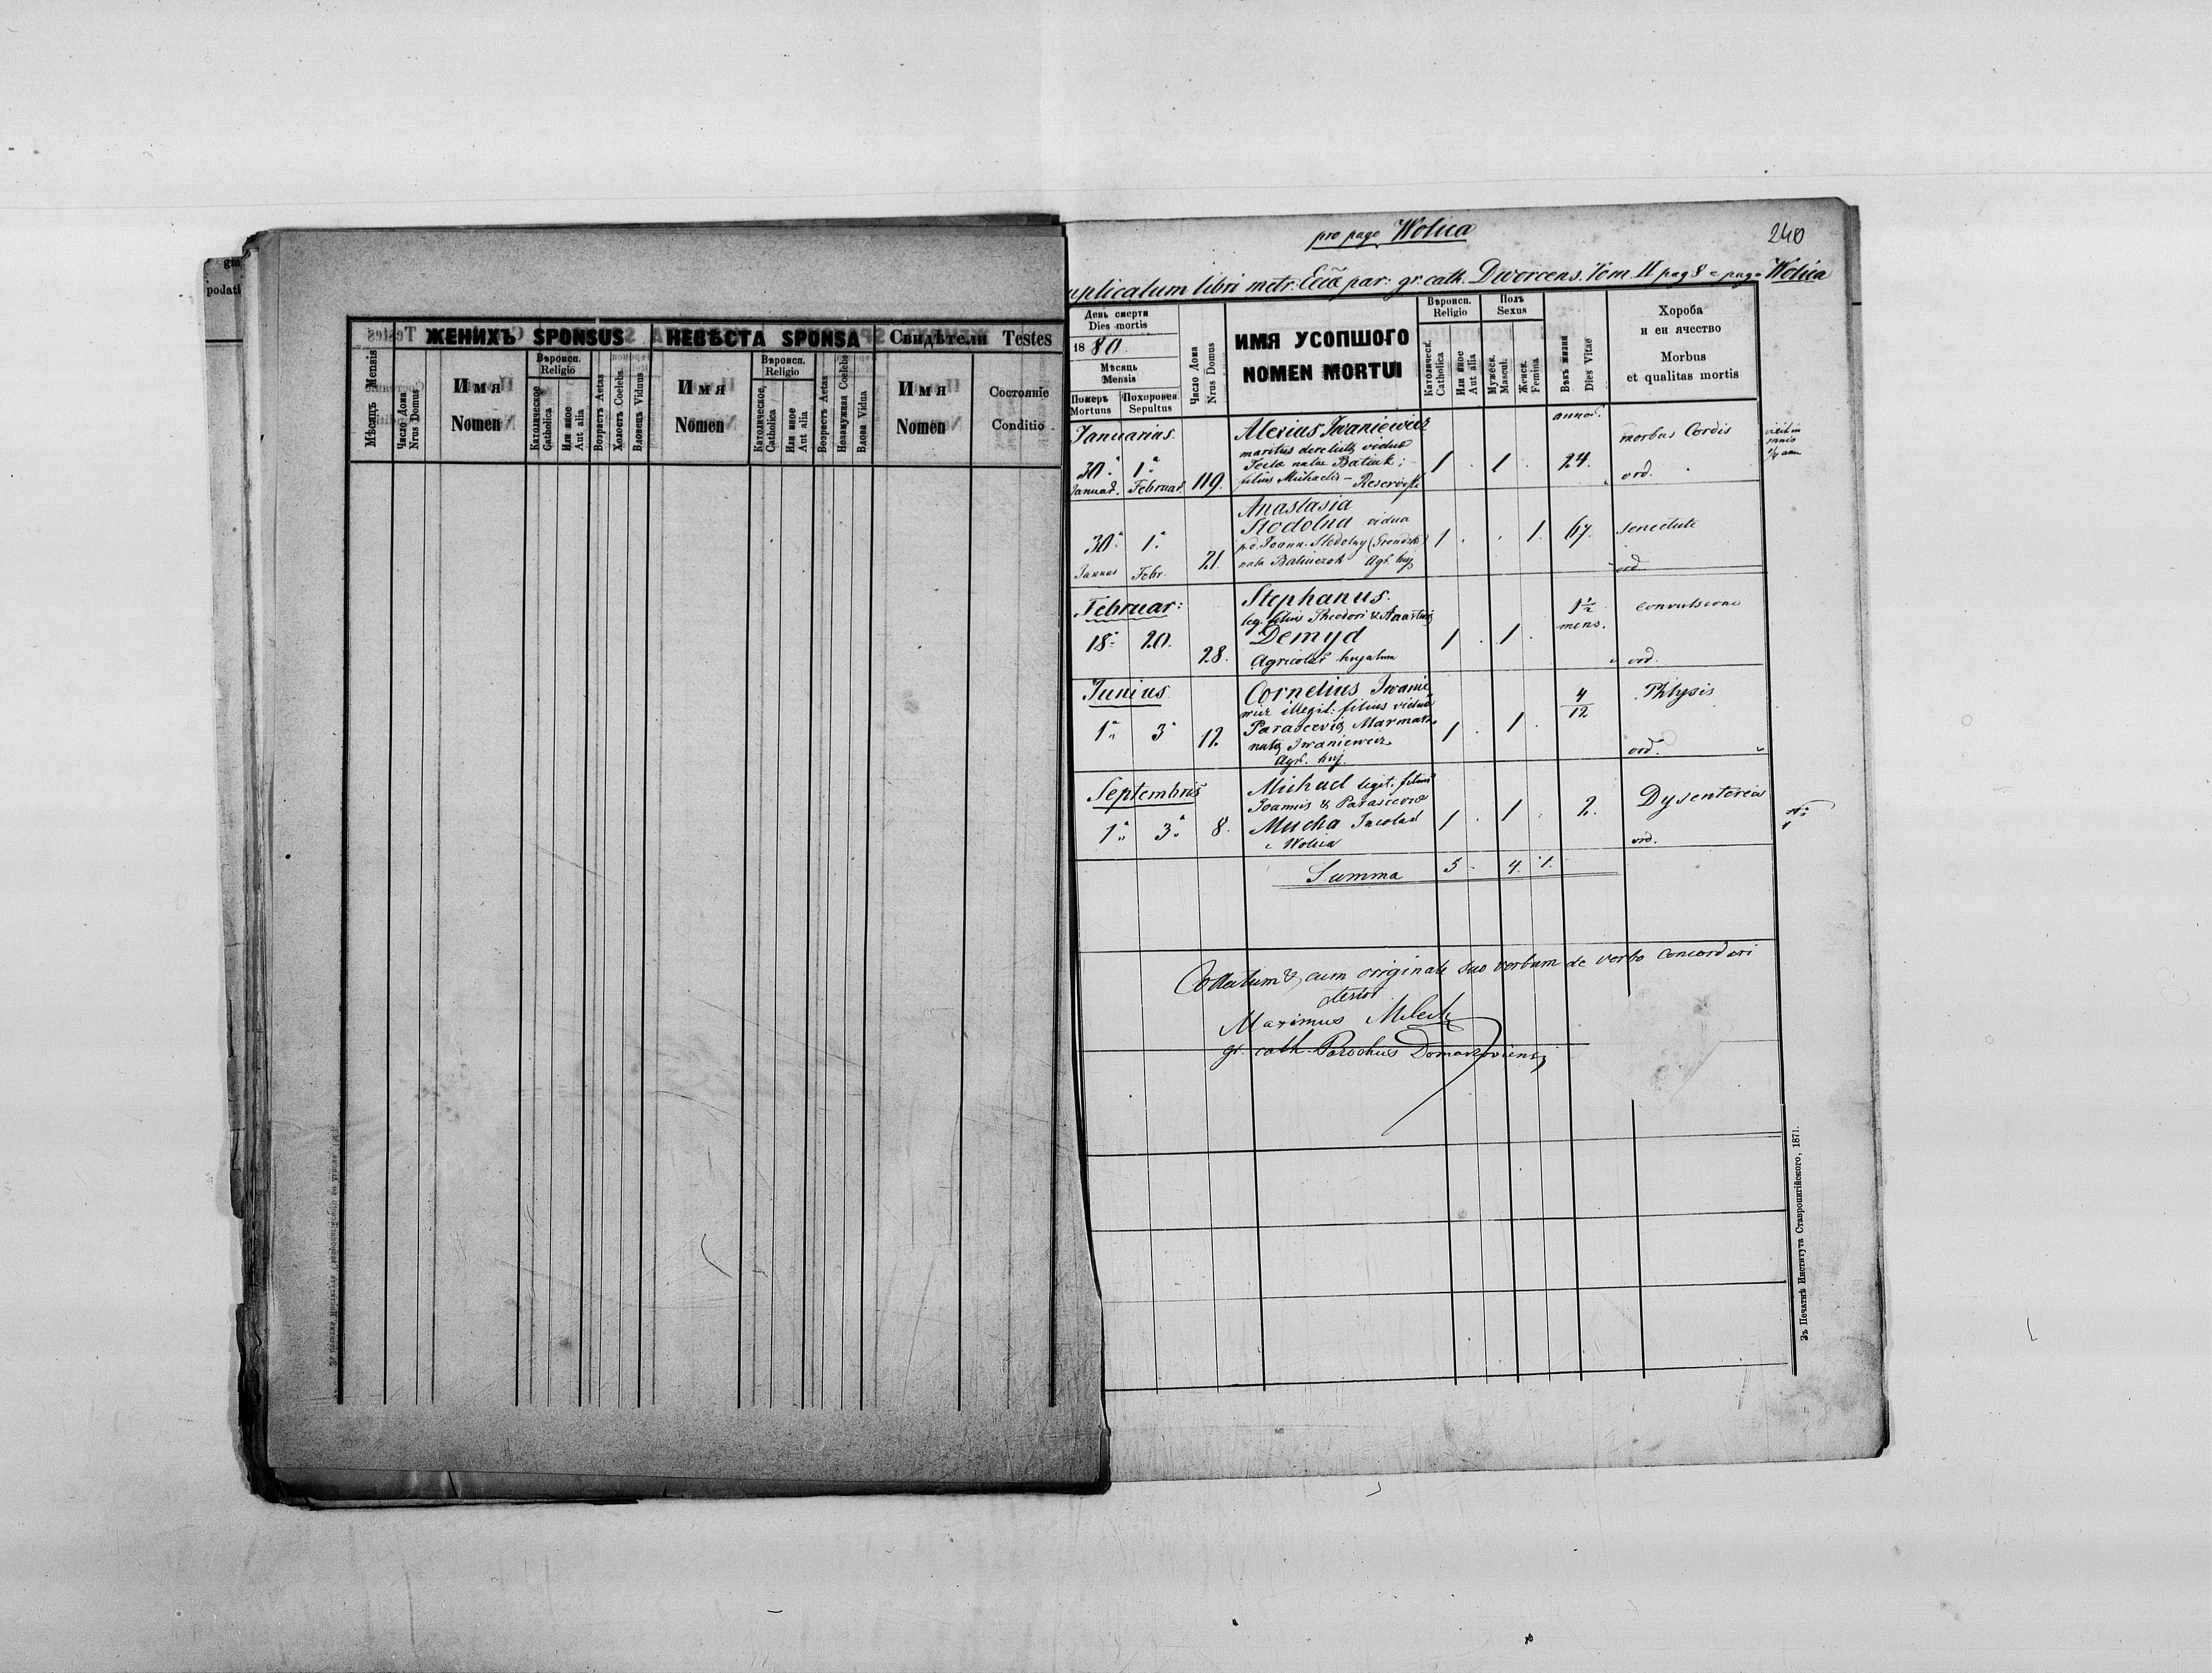 gm
podatl
ЖЕНИХЪ SPONSUS
НЕВѢСТА SPONSA
Свидѣтели Testes
Мѣсяцъ Mensis
Число Дома
Nrus Domus
Имя
Nomen
Вѣроисп.
Religio
Католическое
Catholica
Или иное
Aut alia
Возрастъ Aetas
Холостъ Coelebs
Вдовецъ Viduus
Имя
Nomen
Вѣроисп.
Religio
Католическое,
Catholica
Или иное
Aut alia
Возрастъ Aetas
Незамужная Coelebs
Вдова Vidua
Имя
Nomen
Состояніе
Conditio
pro pago Wolica
240
uplicatum libri metr. Eccl̃ae par: gr. cath. Dworcens. Tom. II pag 8 e pago Wolica
День смерти
Dies mortis
1880.
Мѣсяць
Mensis
Померъ
Mortuus
Похоронен.
Sepultus
Число Дома
Nrus Domus
ИМЯ УСОПШОГО
NOMEN MORTUI
Вѣроисп.
Religio
Католическ.
Catholica
Или иное
Aut alia
Полъ
Sexus
Мужеск.
Mascul.
Женск.
Femina
Вѣкъ жизни
Dies Vitae
Хороба
и еи ячество
Morbus
et qualitas mortis
Januarius.
30. Januar. 1. Februar. 119.
Alexius Iwaniewicz
maritus derelictae viduae
Teclae natae Batiuk;
filius Michaelis – Reservist
1 . 1 . annor. 24.
morbus Cordis
ord.
30. Januar 1. Febr. 21.
Anastasia
Stodolna vidua
p.d. Joann. Stodolny
nata Agr. huj
1 . . 1. 67.
senectute
ord.
Februar:
18. 20. 28.
Stephanus.
leg. filius Theodori &
Demyd
Agricolar hujatum
1 . 1 . 1½ mens.
convulsione
ord.
Junius.
1. 3 12
Cornelius Iwanie
wicz illegit: filius viduae
Parasceviae
natae Iwaniewicz
Agr. huj.
1 . 1 . 4/12
Phtysis
ord.
Septembris
1. 3. 8.
Michael legit. filius
Joannis & Parasceviae
Mucha Incolar
e Wolica
1 . 1 . 2.
Dysenteria
ord.
Summa 5 . 4. 1.
Collatum & cum originale suo verbum de verbo concordari
testor
Maximus
gr. cath. Parochus
Зъ Печатнѣ Института Ставропигійского, 1871.